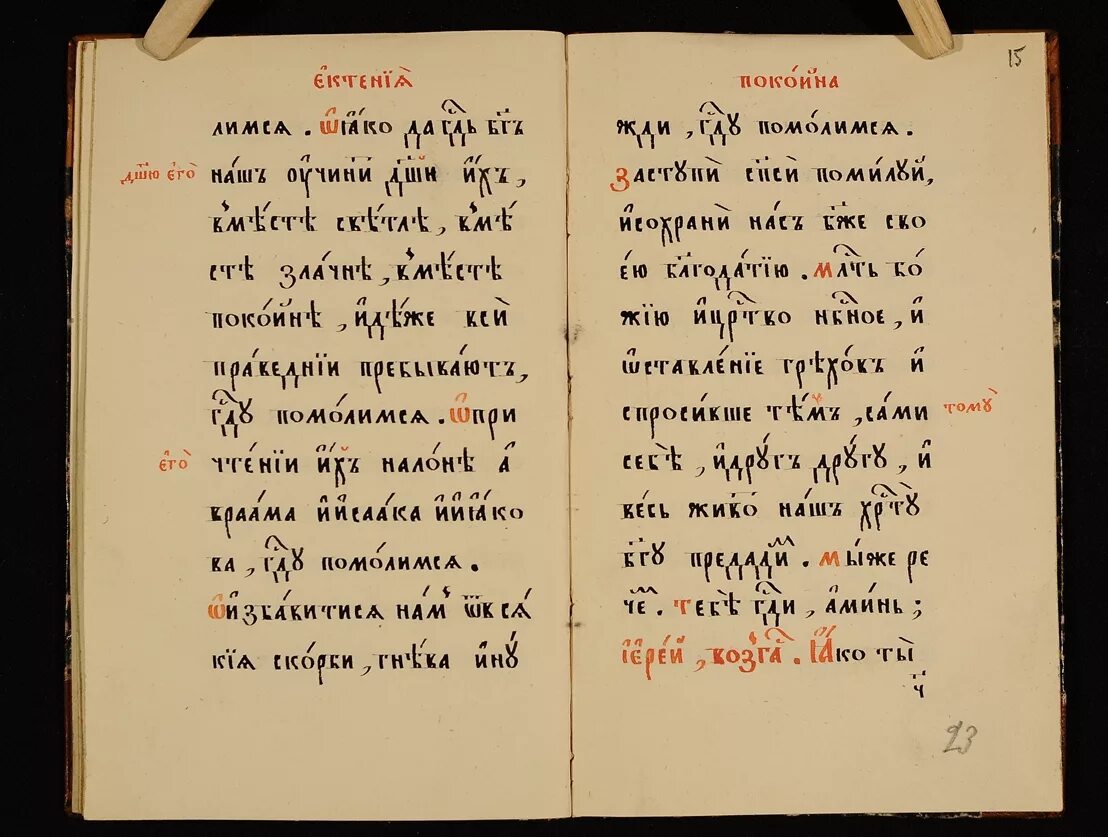 е҆ктенїѧ̀
лимсѧ . Ѡ҆ ꙗ҆́ко да гдⷭ҇ь бг҃ъ
дш҃ю є҆гѡ̀
на́шъ ᲂу҆чини́ дш҃и и҆́хъ ,
в̾мѣ́стѣ свѣ́тлѣ , в̾мѣ́
стѣ зла́чнѣ , в̾мѣ́стѣ
поко́йнѣ , и҆дѣ́же всѝ
пра́веднїи пребыва́ютъ ,
гдⷭ҇ꙋ помо́лимсѧ . Ѡ҆ при
є҆го̀
чте́нїи и҆́хъ на ло́нѣ а҆
враа́ма и҆ и҆саа́ка и҆ и҆ꙗ́ко
ва , гдⷭ҇ꙋ помо́лимсѧ .
Ѡ҆ и҆зба́витисѧ на́мъ ѿ всѧ́
кїѧ ско́рби , гнѣ́ва и҆ нꙋ́
поко́йна
15
жди , гдⷭ҇ꙋ помо́лимсѧ .
Застꙋпѝ сп҃сѝ поми́лꙋй ,
и҆ сохранѝ на́съ бж҃е сво
е́ю блгⷣа́тїю . Млⷭ҇ть бо́
жїю и҆ црⷭ҇тво нбⷭ҇ное , и҆
ѡ҆ставле́нїе грѣхо́въ и҆
спроси́вше тѣ́мъ , са́ми
томꙋ̀
себѣ̀ , и҆ дрꙋ́гъ дрꙋ́гꙋ , и҆
ве́сь живо́тъ на́шъ хрⷭ҇тꙋ̀
бг҃ꙋ предади́мъ . мы́же ре
че́мъ . тебѣ̀ гдⷭ҇и , а҆ми́нь ;
і҆ере́й , возгла̀ . Ꙗ҆́ко ты̀
ч҃
23